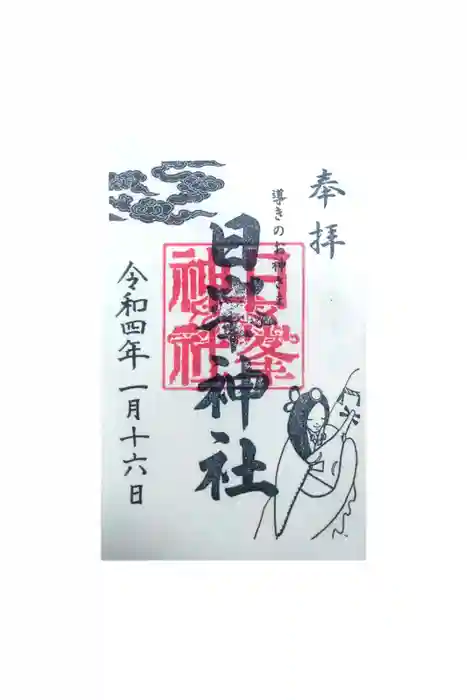 奉拝
導きのお神さま
日峯神社
日峯
神社
令和四年一月十六日